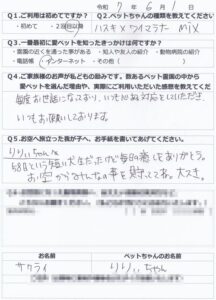 令和 7 年 6 月 1 日
Q1.ご利用は初めてですか？
・初めて ・2回目以降
Q2.ペットちゃんの種類を教えてください
ハスキー×ワイマラナー MIX
Q3.一番最初に愛ペットを知ったきっかけは何ですか？
・霊園の近くを通った事がある ・知人や友人の紹介 ・動物病院の紹介
・電話帳 ・インターネット ・その他（ ）
Q4.ご家族様のお声が私どもの励みです。数あるペット霊園の中から
愛ペットを選んだ理由や、実際にご利用いただいた感想を教えてください
毎度お世話になっており、いつも心ある対応をしていただき
いつもお願いしております。
Q5.お空へ旅立った我が子へ、お手紙を書いてあげてください。
りりぃちゃんへ
という短い犬生だったけど毎日の癒しをありがとう。
お空からみんなの事を見ててね。大スキ。
お名前
ペットちゃんのお名前
サクライ
りりぃちゃん